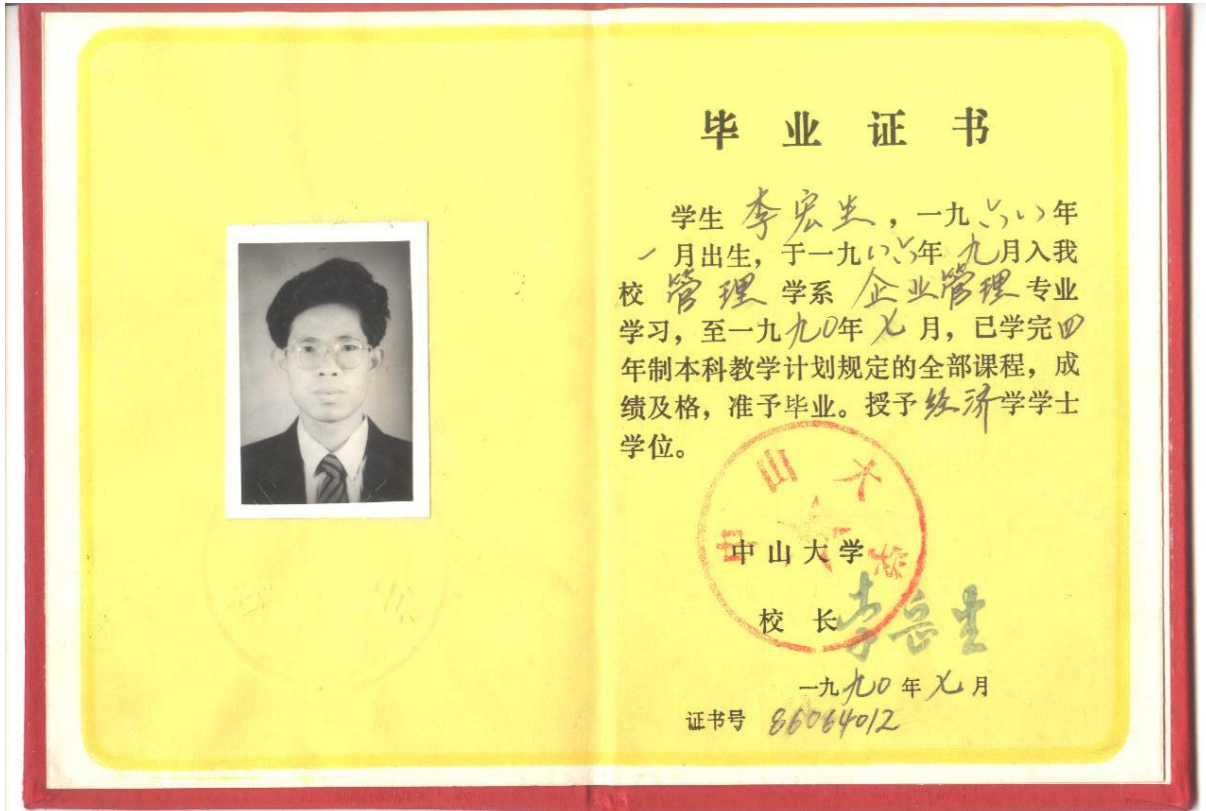 毕业证书
学生 李宏生，一九六八年
一月出生，于一九八六年 九月入我
校 管理 学系 企业管理 专业
学习，至一九九〇年 七 月，已学完四
年制本科教学计划规定的全部课程，成
绩及格，准予毕业。授予经济学学士
学位。
中山大学
中山大学
校 长 李岳生
一九九〇年 七 月
证书号 86064012